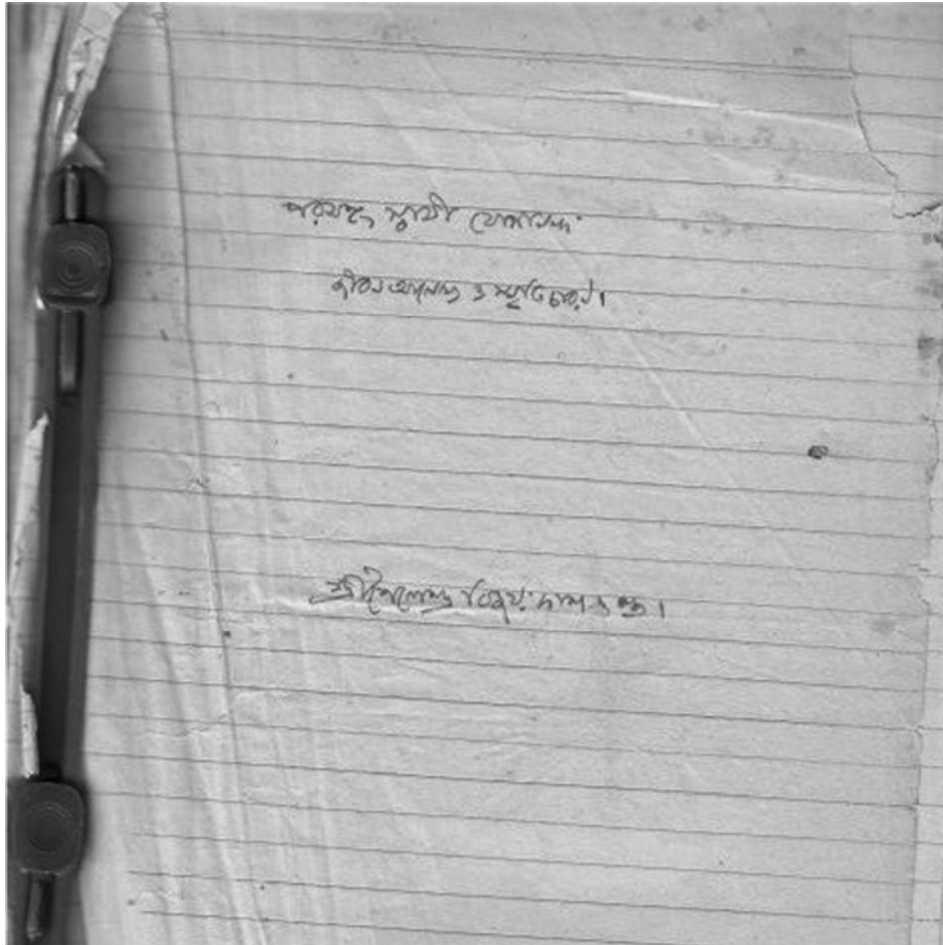 পরমহংস স্বামী যোগানন্দ
জীবন আলেখ্য ও স্মৃতিচারণ।
শ্রীশৈলেন্দ্র বিজয় দাশগুপ্ত।